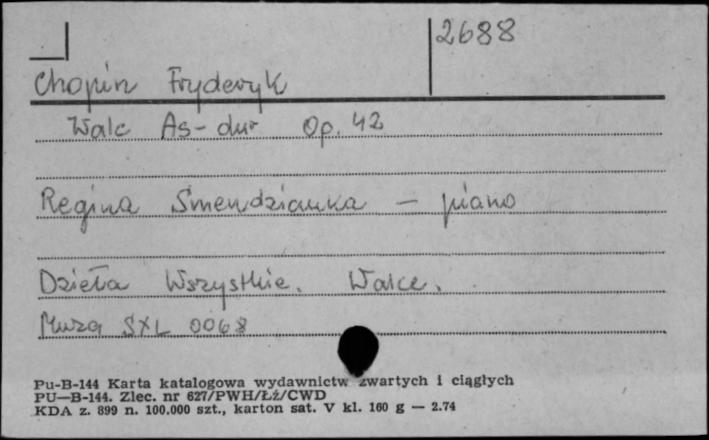 2688
Chopin Fryderyk
Walc As-dur Op. 42
Regina Smendzianka — piano
Dzieła Wszystkie. Walce.
Muza SXL 0068
Pu-B-144 Karta katalogowa wydawnictw zwartych i ciągłych
PU—B-144. Zlec. nr 627/PWH/Łź/CWD
KDA z. 899 n. 100.000 szt., karton sat. V kl. 160 g — 2.74